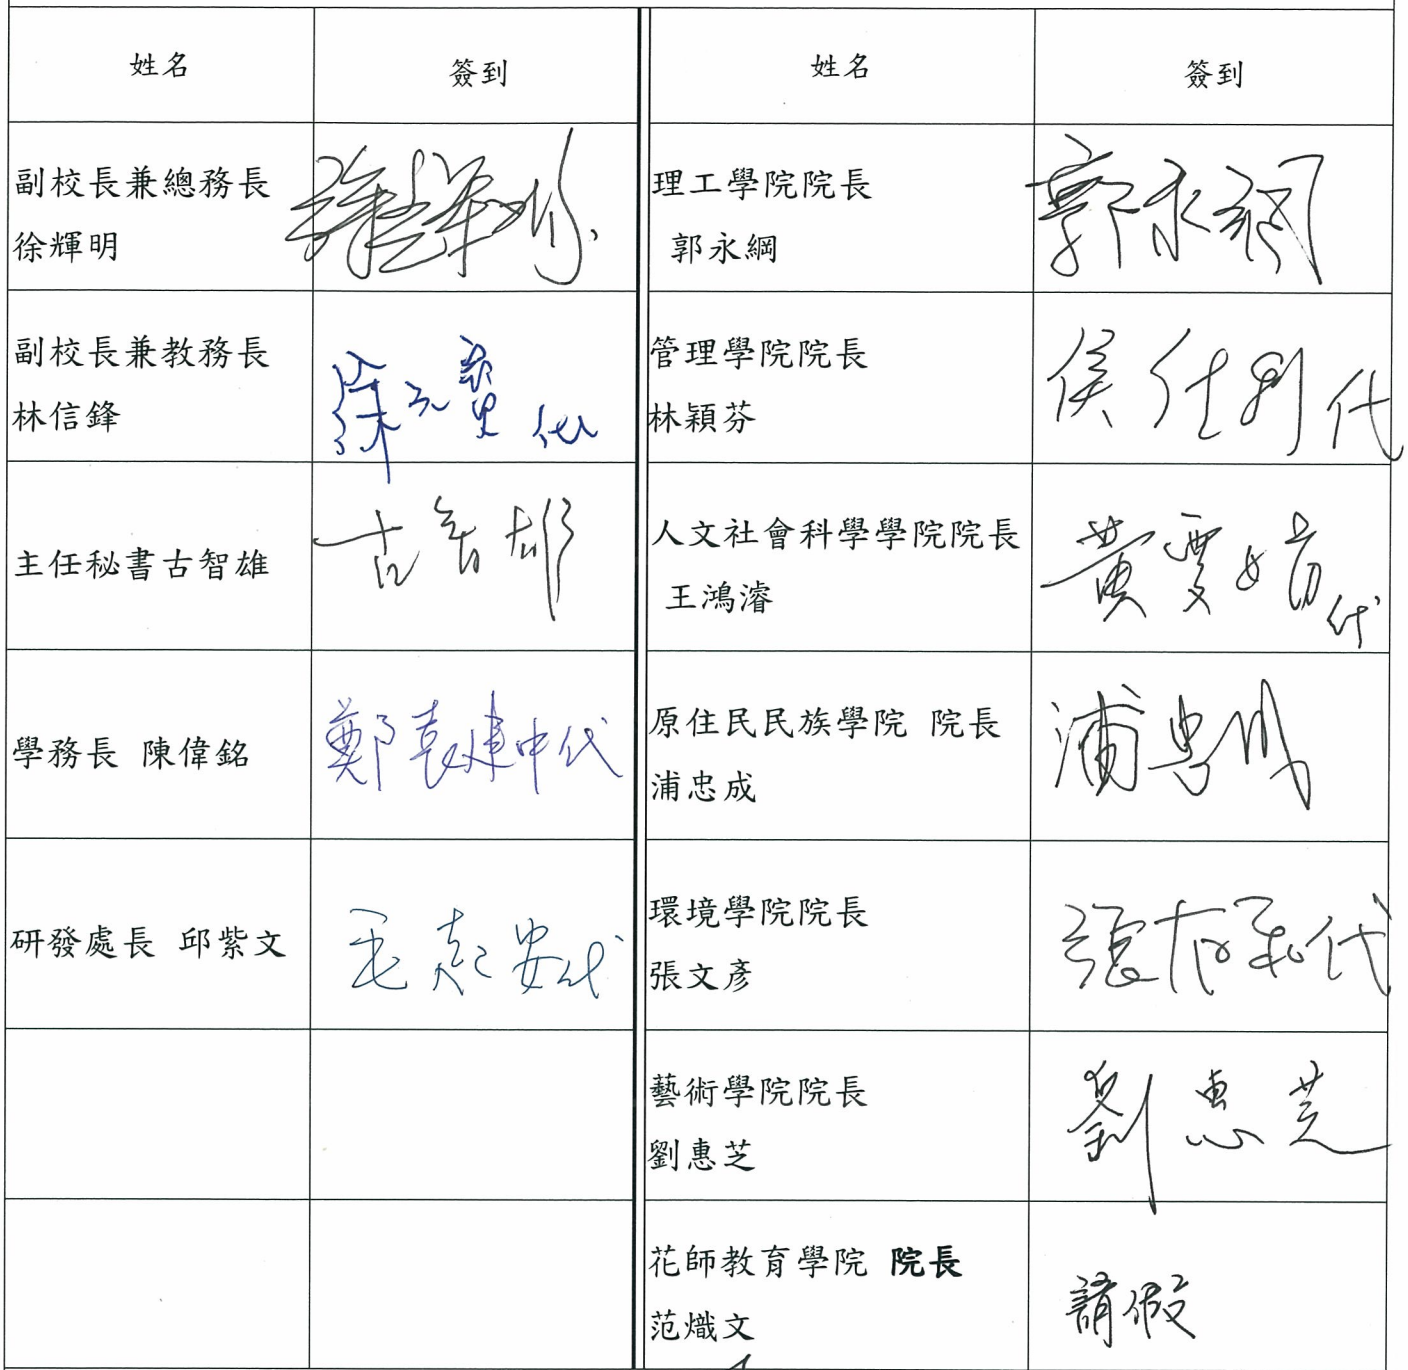 姓名 簽到 姓名 簽到
副校長兼總務長
徐輝明 徐輝明
理工學院院長
郭永綱 郭永綱
副校長兼教務長
林信鋒 徐 代
管理學院院長
林穎芬 侯 代
主任秘書古智雄 古智雄
人文社會科學學院院長
王鴻濬 黃雯娟 代
學務長 陳偉銘 鄭袁建中代
原住民民族學院 院長
浦忠成 浦忠成
研發處長 邱紫文 毛起安代
環境學院院長
張文彥 張有和代
藝術學院院長
劉惠芝 劉惠芝
花師教育學院 院長
范熾文 請假